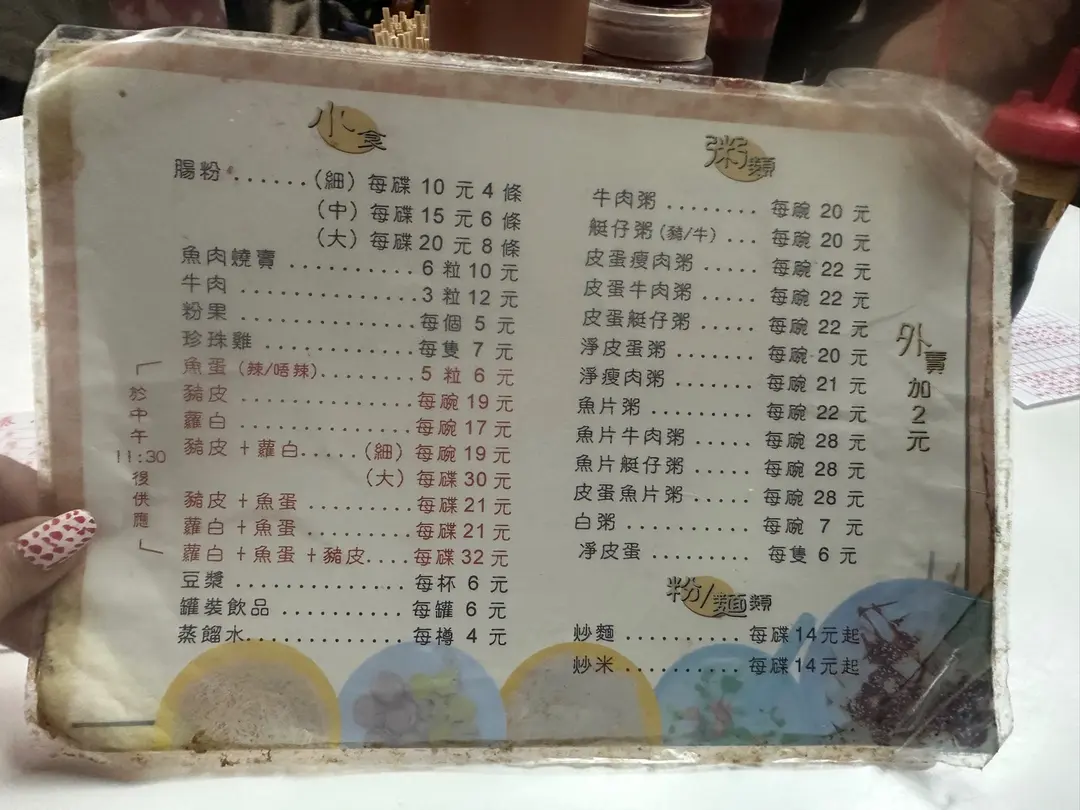 小食
腸粉......(細) 每碟 10 元 4 條
(中) 每碟 15 元 6 條
(大) 每碟 20 元 8 條
魚肉燒賣 ..........6 粒 10 元
牛肉 ..............3 粒 12 元
粉果 ..............每個 5 元
珍珠雞 ............每隻 7 元
魚蛋 (辣/唔辣)........5 粒 6 元
豬皮 ..............每碗 19 元
蘿白 ..............每碗 17 元
豬皮+蘿白.....(細) 每碗 19 元
(大) 每碟 30 元
豬皮+魚蛋 .........每碟 21 元
蘿白+魚蛋 .........每碟 21 元
蘿白+魚蛋+豬皮....每碟 32 元
豆漿 ..............每杯 6 元
罐裝飲品 ..........每罐 6 元
蒸餾水.............每樽 4 元
於中午11:30後供應
粥類
牛肉粥 ........每碗 20 元
艇仔粥(豬/牛) ...每碗 20 元
皮蛋瘦肉粥 .....每碗 22 元
皮蛋牛肉粥 .....每碗 22 元
皮蛋艇仔粥 .....每碗 22 元
淨皮蛋粥 .......每碗 20 元
淨瘦肉粥 .......每碗 21 元
魚片粥 ........每碗 22 元
魚片牛肉粥 .....每碗 28 元
魚片艇仔粥 .....每碗 28 元
皮蛋魚片粥 .....每碗 28 元
白粥 ..........每碗 7 元
淨皮蛋 ........每隻 6 元
粉/麵類
炒麵 ..........每碟 14元起
炒米 ..........每碟 14元起
外賣加2元